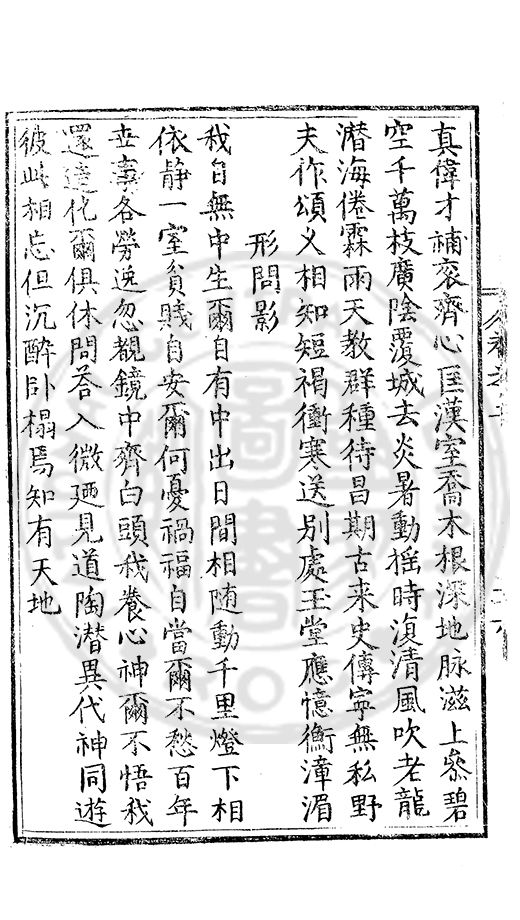 真偉才補袞齊心匡漢室喬木根深地脉滋上叅碧
空千萬枝廣陰覆城去炎暑動揺時復清風吹老龍
潛海倦霖雨天教群種待昌期古来史傳寧無私野
夫作頌义相知短褐衝寒送別處玉堂應憶衡漳湄
形問影
我自無中生爾自有中出日間相随動千里燈下相
依靜一室貧賤自安爾何憂禍福自當爾不愁百年
壽各勞逸忽覩鏡中齊白頭我養心神爾不悟我
還達化爾俱休問荅入微廼見道陶潜異代神同遊
彼此相忘但沉醉卧榻焉知有天地